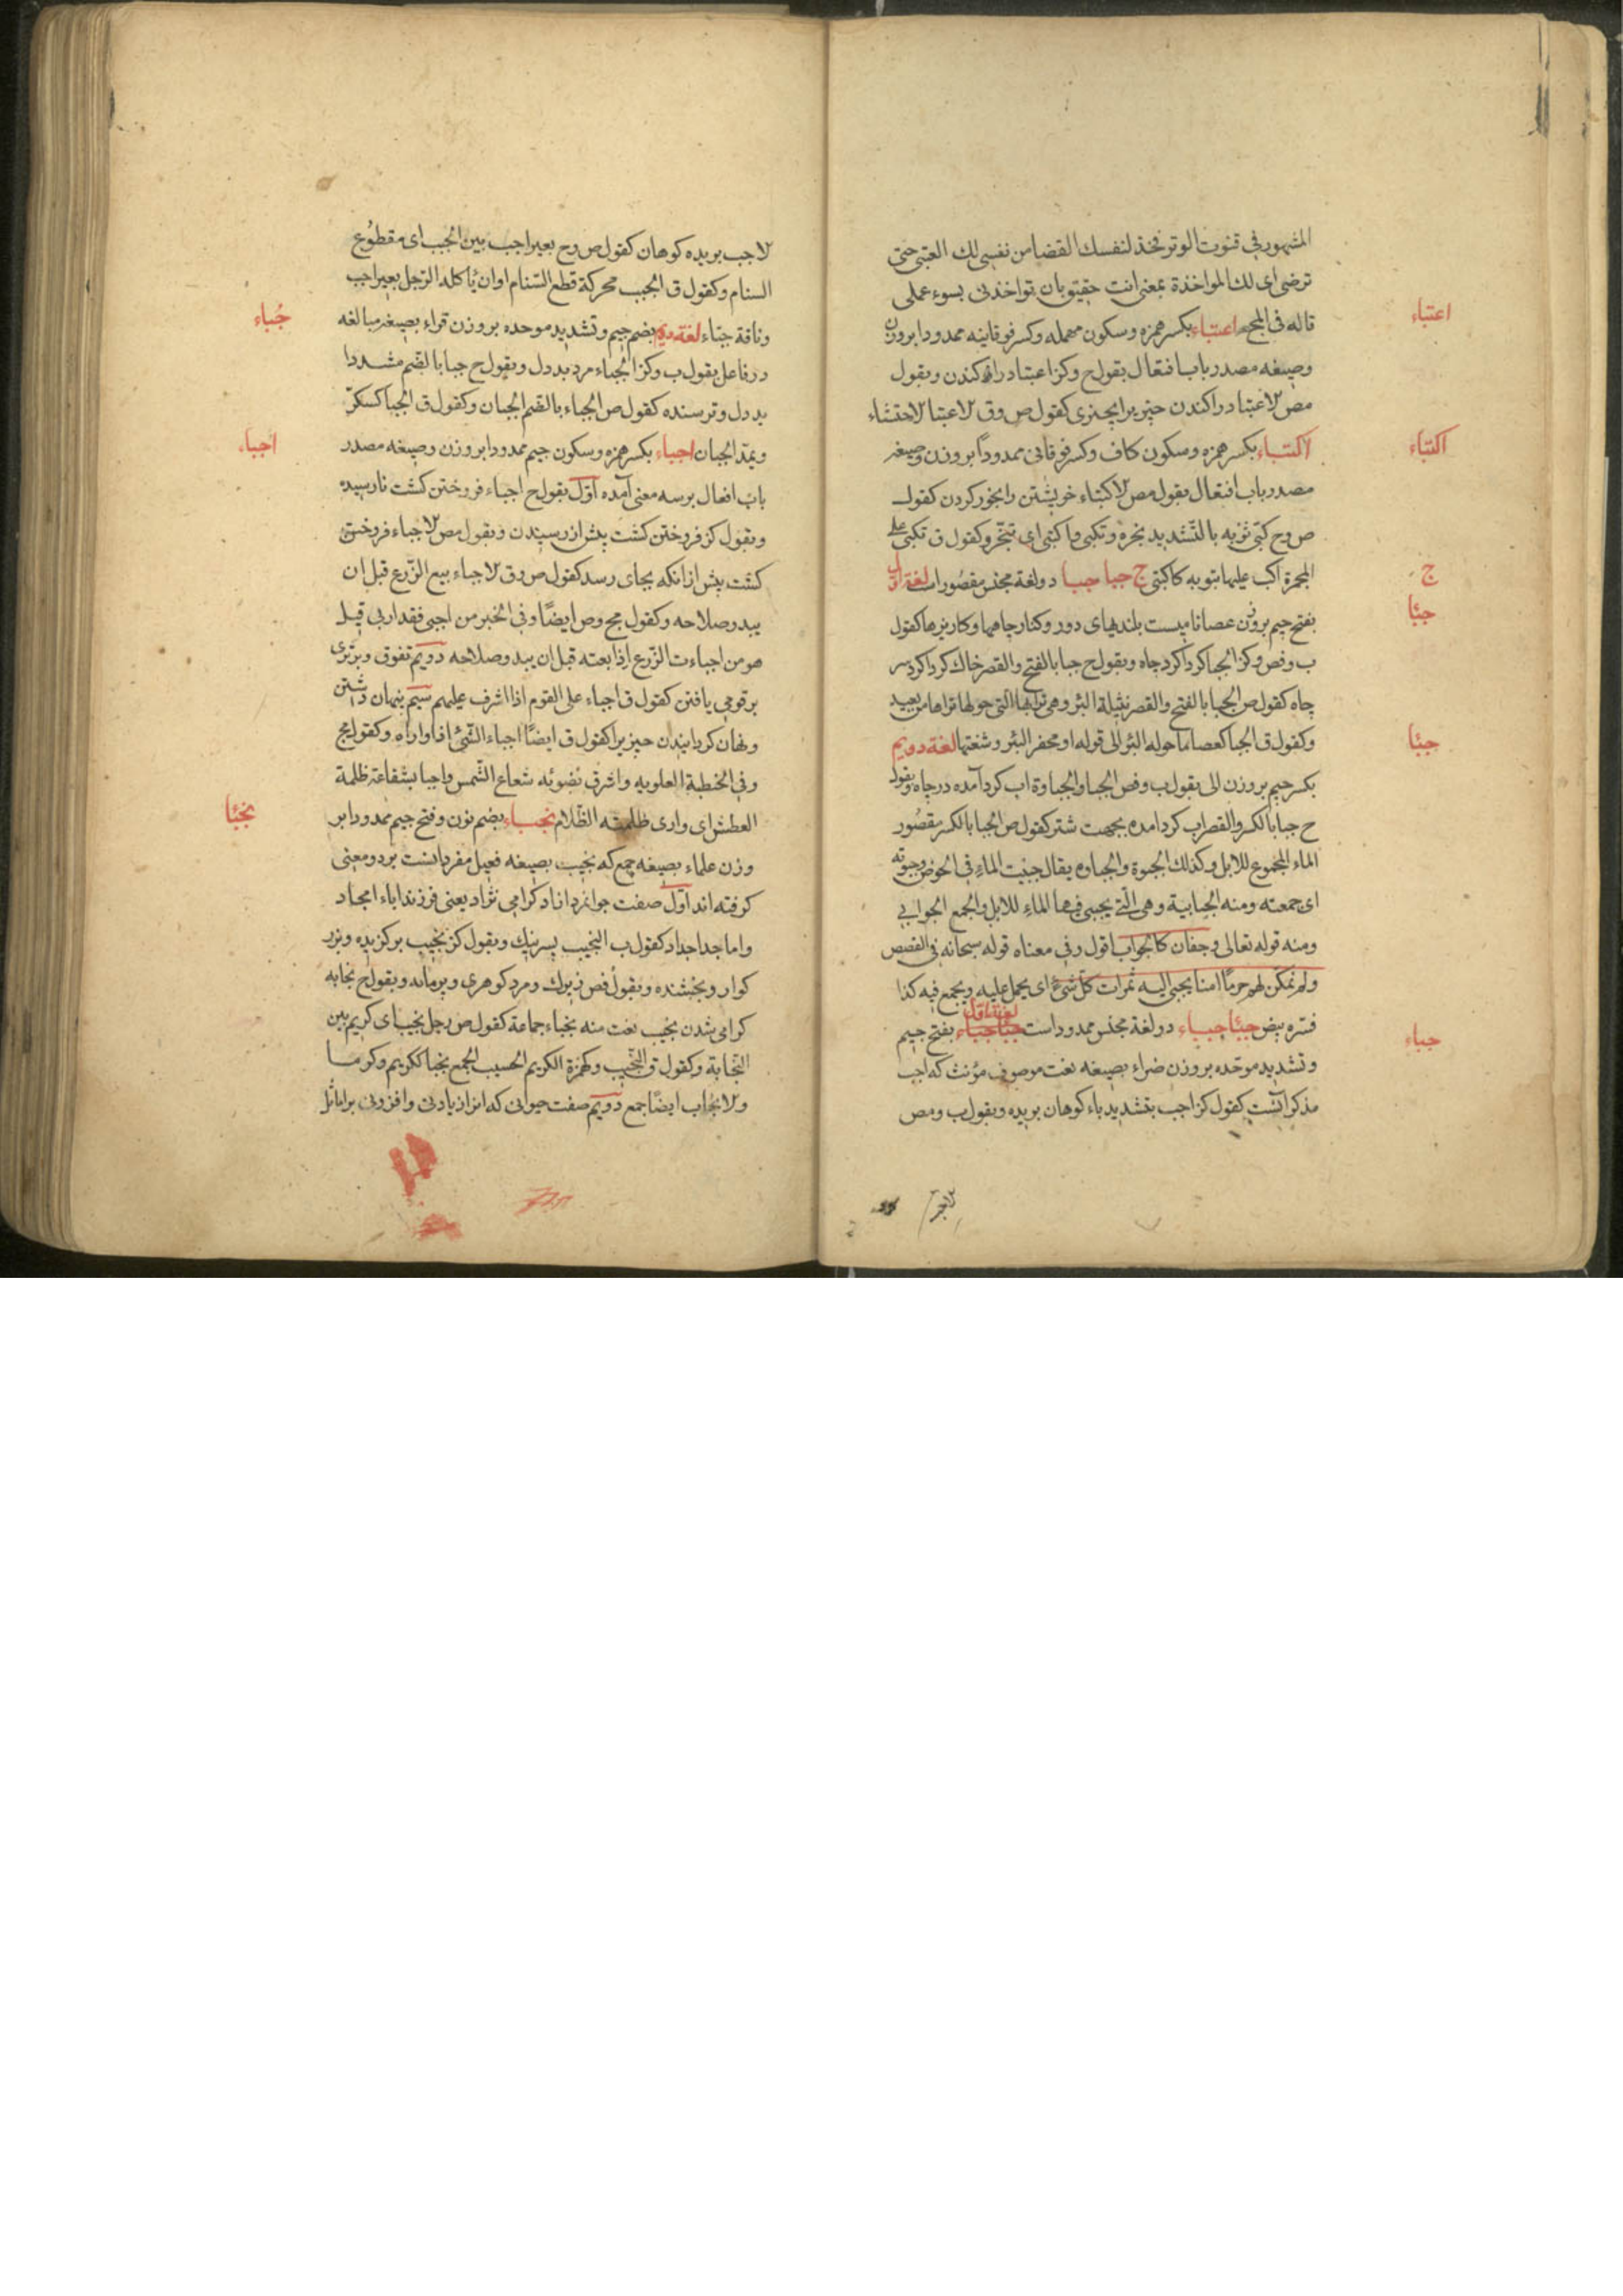 المشهور فی قنوت الوتر فخذ لنفسك القضا من نفسی لك العتبی حتی
ترضی ای لك المواخذة بمعنی انت حقیق بان تواخذنی بسوء عملی
قاله فی المجمع اعتباء بکسر همزه وسکون مهمله وکسر فوقانیه ممدودا بروزن
وصیغه مصدر باب افتعال بقول ح وکنز اعتبا درافکندن وبقول
مص لاعتبا دراکندن چیز برا بچیزی کقول ص وق لاعتبا لاحتشاء
اکتباء بکسر همزه وسکون کاف وکسر فوقانی ممدوداً بروزن وصیغه
مصدر باب افتعال بقول مص لاکتباء خویشتن را بخور کردن کقول
ص وح کبی ثوبه بالتشدید بخره وتکبی واکتبی ای تبخر وکقول ق تکبی علی
المجمرة اکب علیها بثوبه کاکتبی ج جبا جبا دو لغة مجنس مقصور است لغة اول
بفتح جیم بروزن عصا نامیست بلندیهای دور وکنار چاهها وکاریزها کقول
ب وفص وکنز الجبا کرداکرد چاه وبقول ح جبا بالفتح والقصر خاك کرداکرد سر
چاه کقول ص الجبا بالفتح والقصر نثیلة البئر وهی ترابها التی حولها تراها من بعید
وکقول ق الجبا کعصا ما حوله البئر الی قوله او محفر البئر وشفتها لغة دویم
بکسر جیم بروزن الی بقول ب وفص الجبا والجباوة اب کرد آمده در چاه وبقول
ح جبا بالکسر والقصر اب کرد امده بجهت شتر کقول ص الجبا بالکسر مقصُور
الماء المجموع للابل وکذلك الجبوة والجباوه یقال جبیت الماء فی الحوض وجبوته
ای جمعته ومنه الجبابیة وهی الّتی یجبی فیها الماء للابل والجمع الجوابی
ومنه قوله تعالی وجفان کالجواب اقول وفی معناه قوله سبحانه فی القصص
ولم نمکّن لهم حرمًا امنا یجبی الیه ثمرات کل شئ ای یحمل علیه ویجمع فیه کذا
فسّره بیض جبئا جباء دو لغة مجنس ممدود است جبا جباء لغة اول بفتح جیم
وتشدید موحّده بروزن ضراء بصیغه نعت موصوف مؤنث که اجب
مذکر آنست کقول کنز اجب بتشدید باء کوهان بریده وبقول ب ومص
اعتباء
اکتباء
ج
جبئا
جبئا
جباء
لاجب بریده کوهان کقول ص وح بعیر اجب بین الجبب ای مقطوُع
السنام وکقول ق الجبب محرکة قطع السّنام او ان یاکله الرّحل بعیر اجب
وناقة جبّاء لغة دویم بضم جیم وتشدید موحده بروزن قراء بصیغه مبالغه
در فاعل بقول ب وکنز الجباء مرد بددل وبقول ح جبا بالضم مشددا
بددل وترسنده کقول ص الجباء بالضم الجبان وکقول ق الجبا کسکّر
ویمدّ الجبان اجباء بکسر همزه وسکون جیم ممدودا بروزن وصیغه مصدر
باب افعال برسه معنی آمده اوّل بقول ح اجباء فروختن کشت نارسیده
وبقول کنز فروختن کشت پیش از رسیدن وبقول مص لاجباء فروختن
کشت پیش ازانکه بجای رسد کقول ص وق لاجباء بیع الزّرع قبل ان
یبدو صلاحه وکقول مج وص ایضًا وفی الخبر من اجبی فقد اربی قیل
هو من اجباءت الزّرع اذا بعته قبل ان یبدو صلاحه دویم تفوق وبرتری
بر قومی یافتن کقول ق اجباء علی القوم اذا اشرف علیهم سیم پنهان داشتن
ونهان کردانیدن چیز برا کقول ق ایضًا اجباء الشّئ اذا واراه وکقول مج
وفی الخطبة العلویه واشرق بضوئه شعاع الشّمس واجبا
العطش ای واری ظلمته الظّلام نجباء بضم نون وفتح جیم ممدودا بر
وزن علماء بصیغه جمع که نجیب بصیغه فعیل مفرد انست بر دو معنی
کرفته اند اوّل صفت جوانمرد کرامی نژاد یعنی فرزند اباء امجاد
واما جد اجداد کقول ب النجیب پسر نیك وبقول کنز نجیب برکزیده وبزر
کوار وبخشنده وبقول فص زیرك ومرد کوهری وبقول ح نجابه
کرامی شدن نجیب نعت منه نجباء جماعة کقول ص رجل نجیب ای کریم بین
النّجابة وکقول ق النّجیب وکهمزة الکریم الحسیب الجمع نجبا ککریم وکرما
ولانجاب ایضًا جمع دویم صفت حیوانی که
جُباء
اجباء
نجبئا